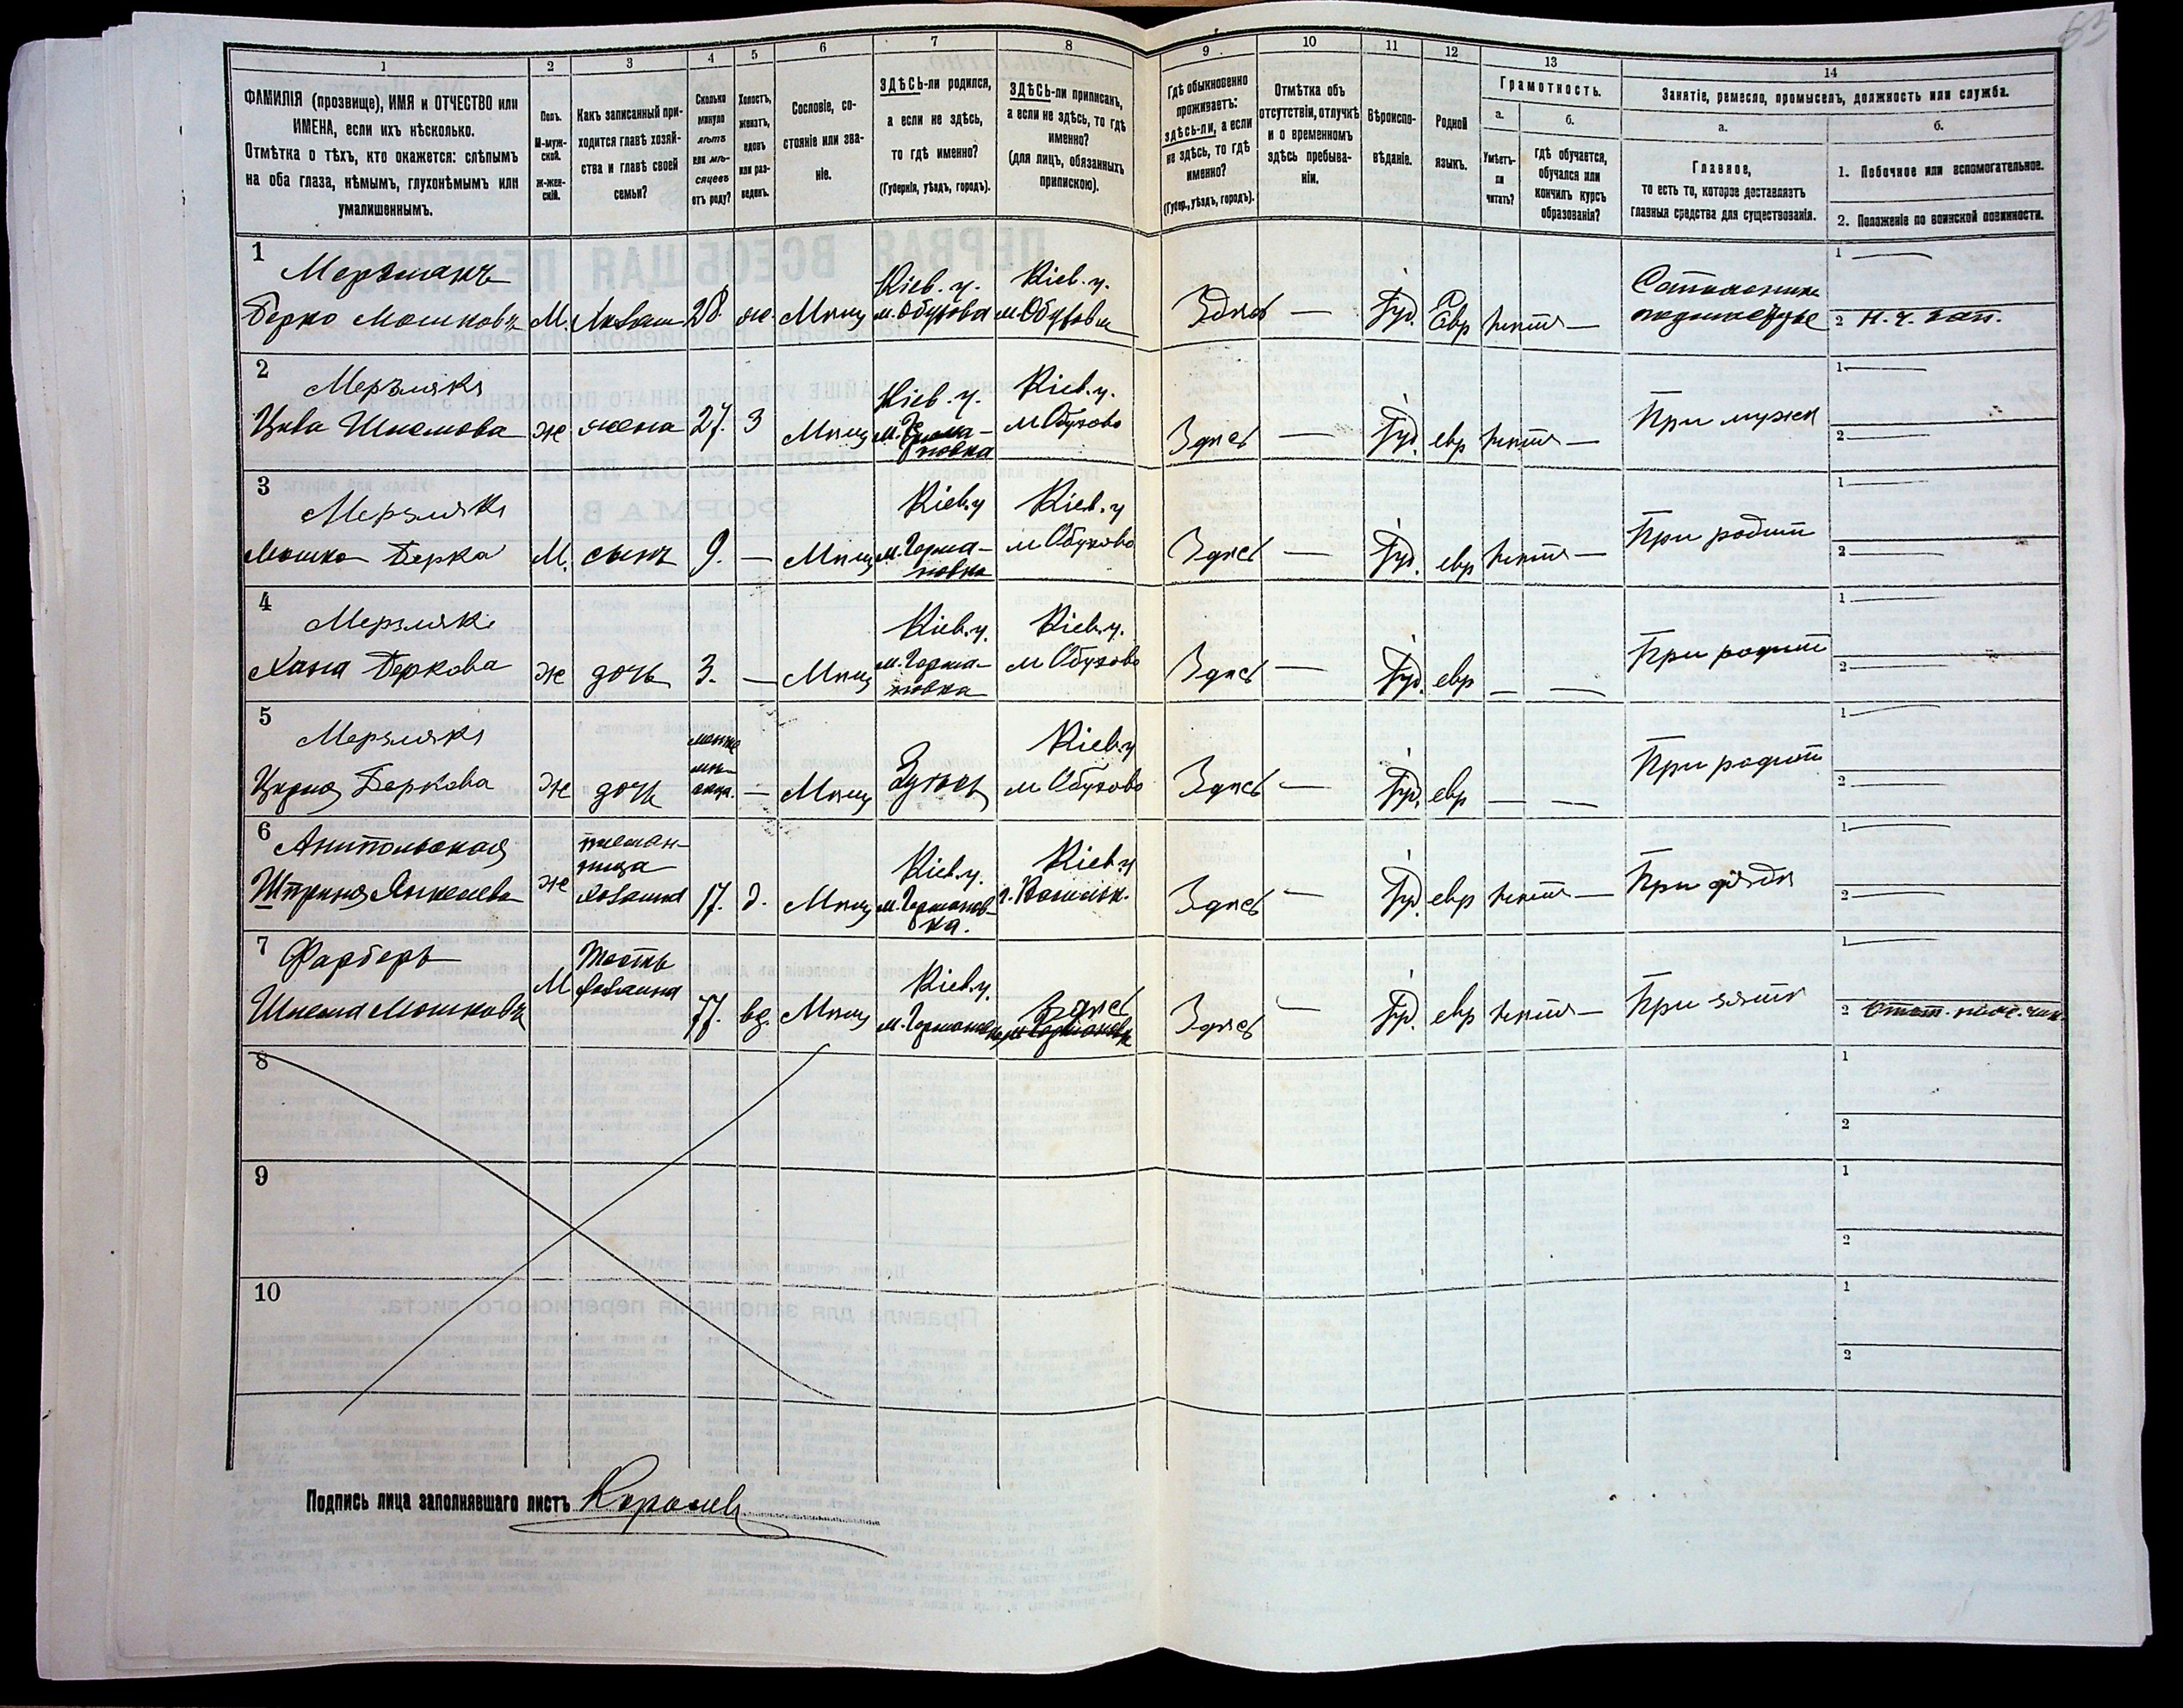 63
1 2 3 4 5 6 7 8 9 10 11 12 13 14
ФАМИЛІЯ (прозвище), ИМЯ и ОТЧЕСТВО или
ИМЕНА, если ихъ нѣсколько.
Отмѣтка о тѣхъ, кто окажется: слѣпымъ
на оба глаза, нѣмымъ, глухонѣмымъ или
умалишеннымъ.
Полъ.
М-муж-
ской.
Ж-жен-
скій.
Какъ записанный при-
ходится главѣ хозяй-
ства и главѣ своей
семьи?
Сколько
минуло
лѣтъ
или мѣ-
сяцевъ
отъ роду?
Холостъ,
женатъ,
вдовъ
или раз-
веденъ.
Сословіе, со-
стояніе или зва-
ніе.
ЗДѢСЬ-ли родился,
а если не здѣсь,
то гдѣ именно?
(Губернія, уѣздъ, городъ).
ЗДѢСЬ-ли приписанъ,
а если не здѣсь, то гдѣ
именно?
(для лицъ, обязанныхъ
припискою).
Гдѣ обыкновенно
проживаетъ:
здѣсь-ли, а если
не здѣсь, то гдѣ
именно?
(Губер., уѣздъ, городъ).
Отмѣтка объ
отсутствіи, отлучкѣ
и о временномъ
здѣсь пребыва-
ніи.
Вѣроиспо-
вѣданіе.
Родной
языкъ.
Грамотность.
а.
Умѣетъ-
ли
читать?
б.
Гдѣ обучается,
обучался или
кончилъ курсъ
образованія?
Занятіе, ремесло, промыселъ, должность или служба.
а.
Главное,
то есть то, которое доставляетъ
главныя средства для существованія.
б.
1. Побочное или вспомогательное.
2. Положеніе по воинской повинности.
1
Берко Мошковъ М. Хозяин 28. ж. Мѣщ
Кіев. у.
м. Обухова
Кіев. у.
м. Обухова
Здѣсь — Іуд. Евр нѣтъ —
1 —
2 Н. ч. зап.
2 Мерзляка
Цива Шлемова ж жена 27. З Мѣщ
Кіев. у.
м. Герма-
новка
Кіев. у.
м Обухово
Здѣсь — Іуд. евр нѣтъ — При мужѣ
1 —
2 —
3 Мерзляка
Мошко Берка М. сынъ 9. — Мѣщ
Кіев. у
м. Герма-
новка
Кіев. у
м Обухово
Здѣсь — Іуд. евр нѣтъ — При родит
1 —
2 —
4 Мерзляка
Хана Беркова ж дочь 3. — Мѣщ
Кіев. у.
м. Герма-
новка
Кіев. у.
м Обухово
Здѣсь — Іуд. евр — — При родит
1 —
2 —
5 Мерзляка
Беркова ж дочь
менѣе
мѣ-
сяца. — Мѣщ Здѣсь
Кіев. у
м Обухово
Здѣсь — Іуд. евр — — При родит
1 —
2 —
6
Янкелева ж
племян-
ница
хозяина
17. д. Мѣщ
Кіев. у.
м. Германов-
ка.
Кіев. у
Здѣсь — Іуд. евр нѣтъ — При дядѣ
1 —
2 —
7 Фарберъ
Шлема Мошковъ М
Тесть
хозяина
77. вд. Мѣщ
Кіев. у.
м. Германовка
Здѣсь
Здѣсь — Іуд. евр нѣтъ — При зятѣ
1 —
2
8 1 2
9 1 2
10 1 2
Подпись лица заполнявшаго листъ